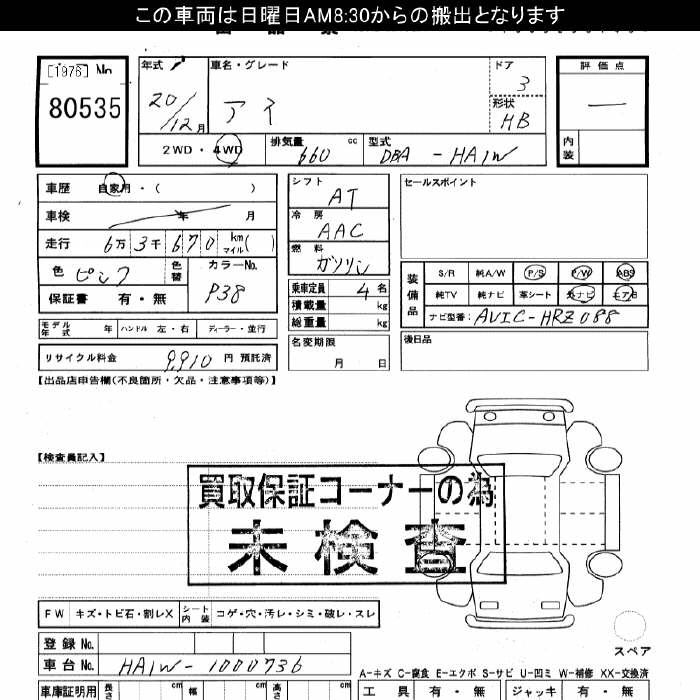 この車両は日曜日AM8:30からの搬出となります
[1976] No 80535
年式 20/12月 車名・グレード アイ ドア 3 形状 HB
2WD・4WD 排気量 660 cc 型式 DBA-HA1W
評価点 —
内装
車歴 自家用・( )
車検 年 月
走行 6万3千670 km マイル( )
色 ピンク 色替 カラーNo. P38
保証書 有・無
モデル年式 年 ハンドル 左・右 ディーラー・並行
リサイクル料金 9,910 円 預託済
シフト AT
冷房 AAC
燃料 ガソリン
乗車定員 4 名
積載量 kg
総重量 kg
名変期限 月 日
セールスポイント
装備品 S/R 純A/W P/S P/W ABS
純TV 純ナビ 革シート 外ナビ エアB
ナビ型番: AVIC-HRZ088
後日品
【出品店申告欄(不良箇所・欠品・注意事項等)】
【検査員記入】
買取保証コーナーの為
未検査
FW キズ・トビ石・割レX シート内装 コゲ・穴・汚レ・シミ・破レ・スレ
登録No.
車台No. HA1W-1000736
スペア
A-キズ C-腐食 E-エクボ S-サビ U-凹ミ W-補修 XX-交換済
車庫証明用 長さ cm 幅 cm 高さ cm
工具 有・無 ジャッキ 有・無